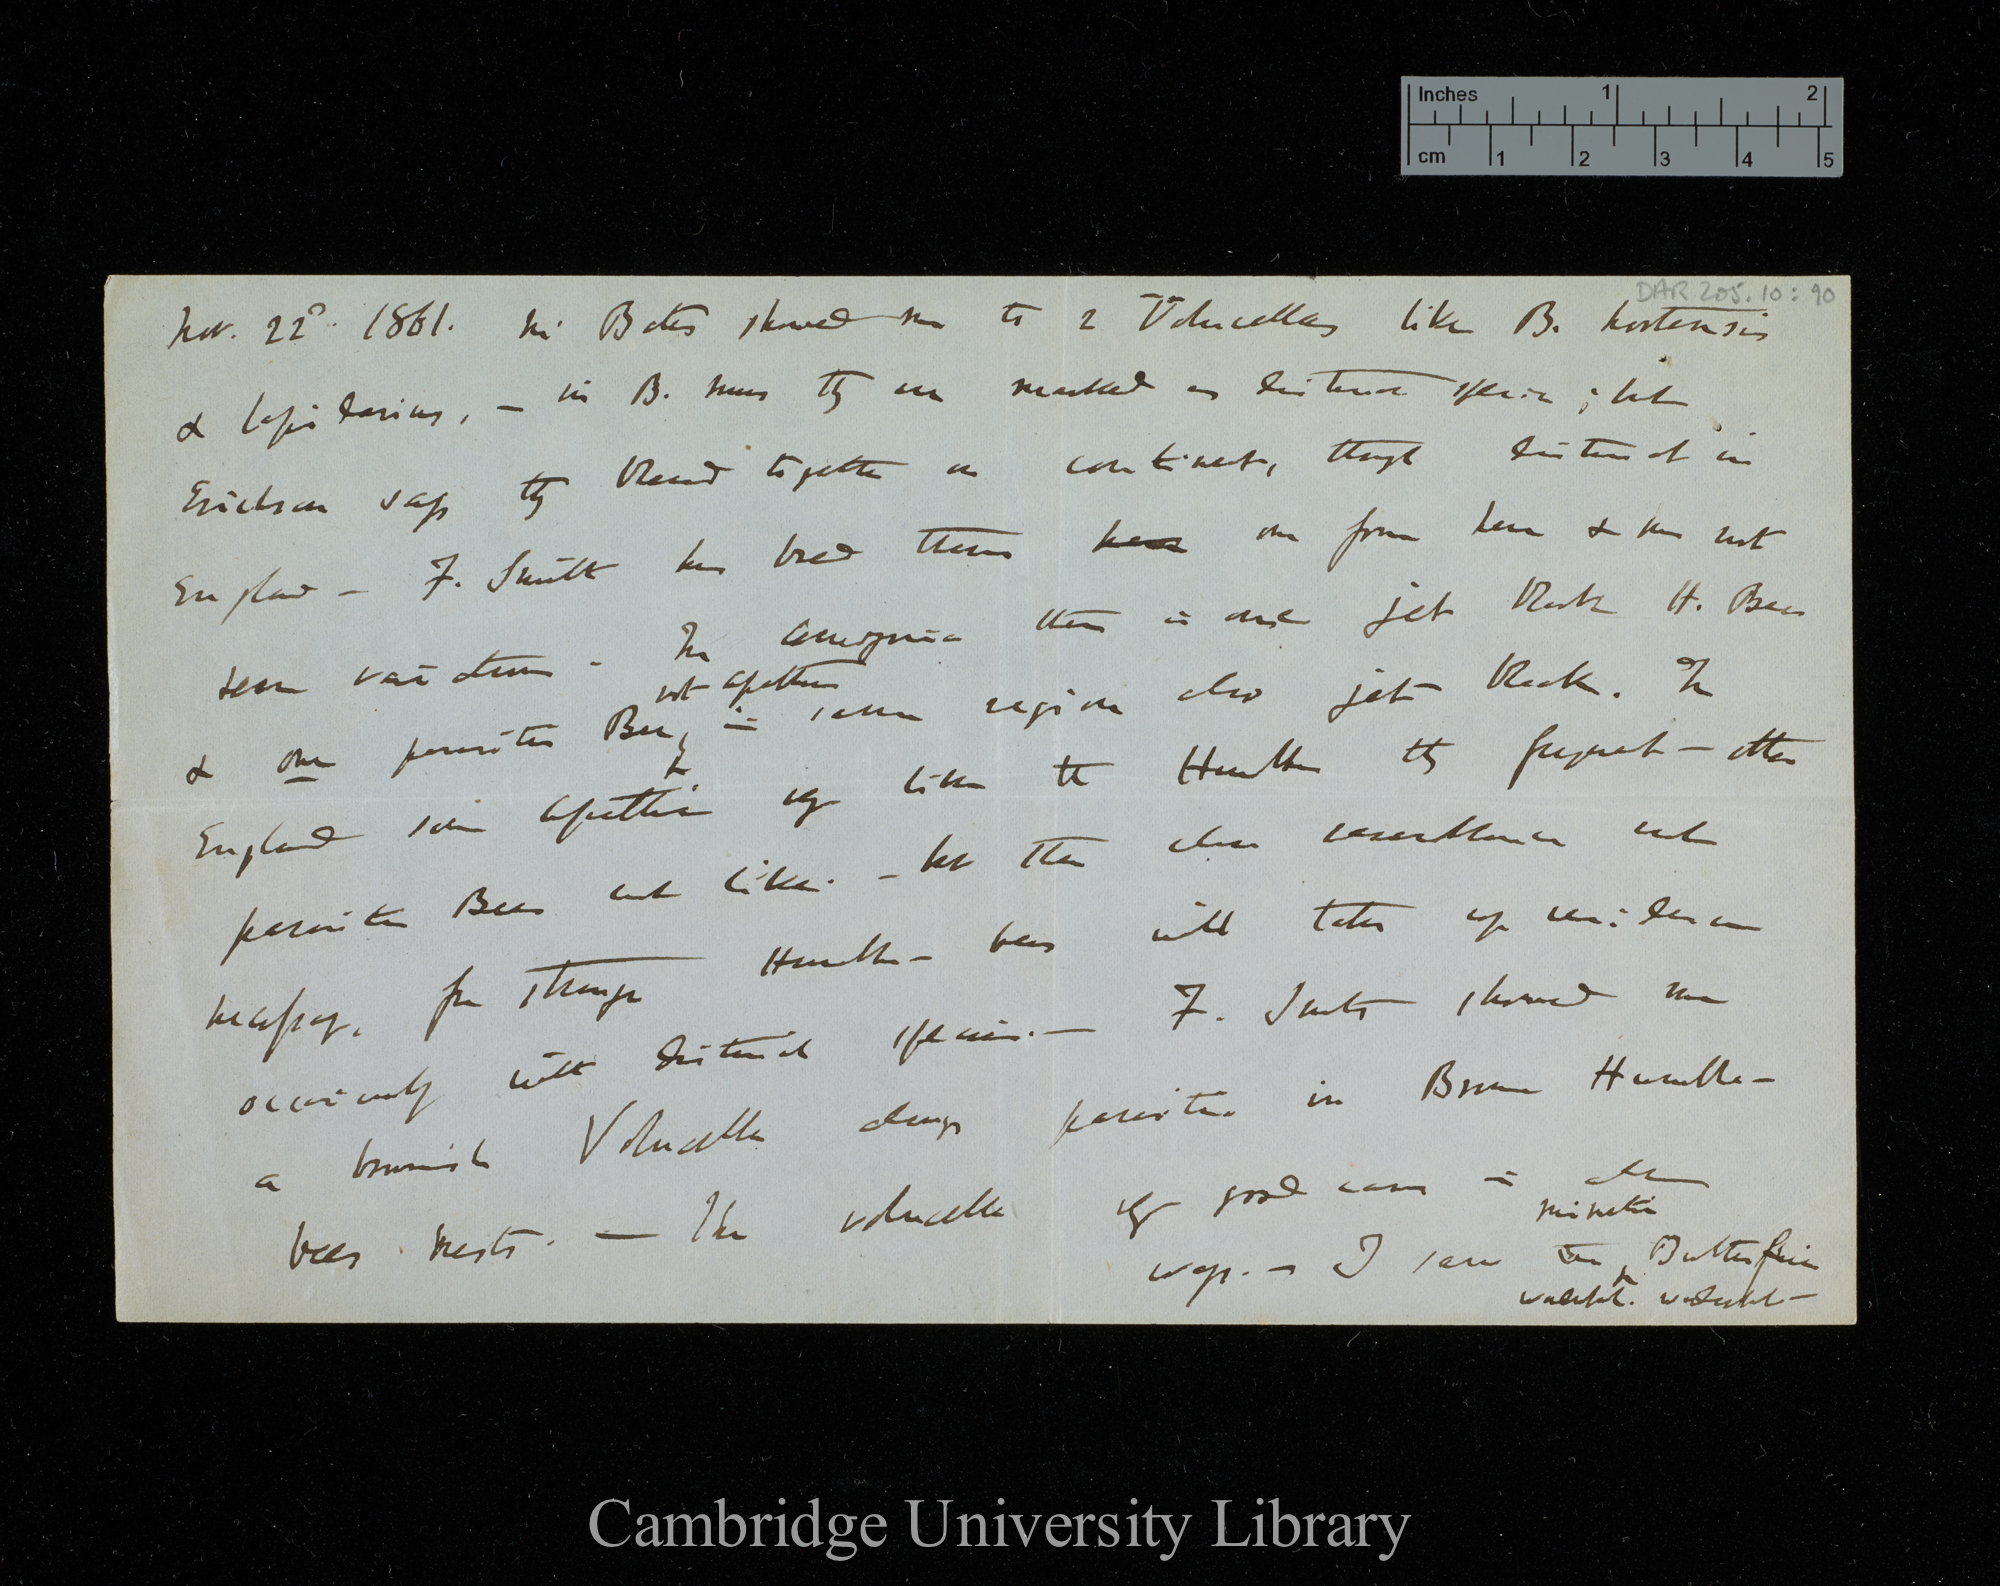 Inches 1 2
cm 1 2 3 4 5
DAR 205.10 : 90
Nov. 22d. 1861. Mr Bates showed me to 2 Volucellas like B. hortensis
& lapidarius, — in B. Mus they are marked as distinct species; but
Erichson says they blend together on continent, though distinct in
England — F. Smith has bred them one from here & are not
mere variations. In Amazonia there is one jet black H. Bee
not Apathus
& one parasitic Bee, in same region also jet black. In
England some Apathi are like the Humble they frequent — other
parasitic Bees not like. — but this close resemblance not
necessary, for strange Humble-bees will take up residence
occasionally with distinct species. — F. Smith showed me
a brownish Volucella always parasitic in Brown Humble-
bees nests. — The Volucella are good case in
mimetic
way. — I saw the Butterflies